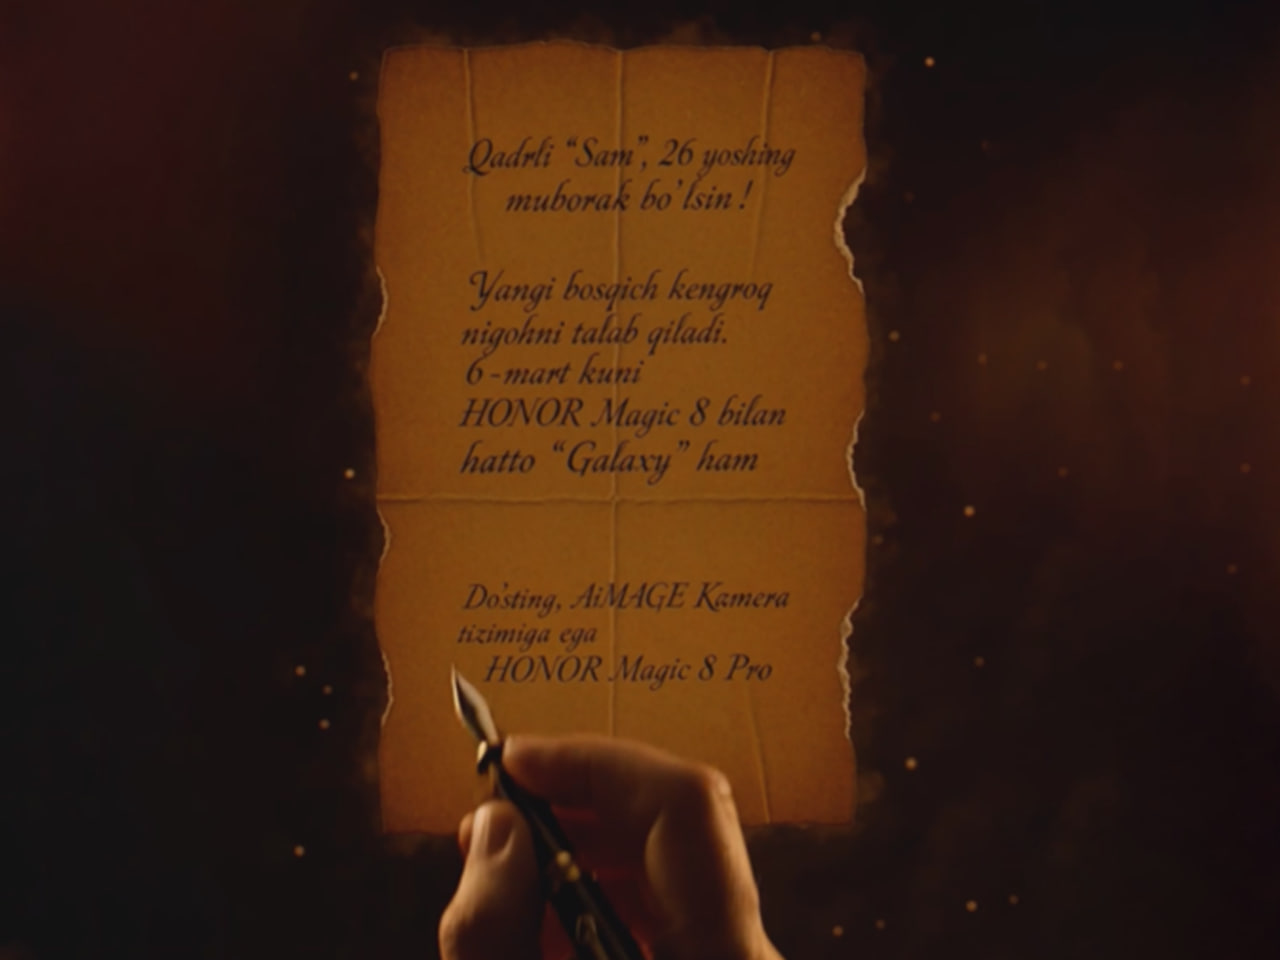 Qadrli “Sam”, 26 yoshing
muborak bo’lsin !
Yangi bosqich kengroq
nigohni talab qiladi.
6-mart kuni
HONOR Magic 8 bilan
hatto “Galaxy” ham
Do’sting, AiMAGE Kamera
tizimiga ega
HONOR Magic 8 Pro